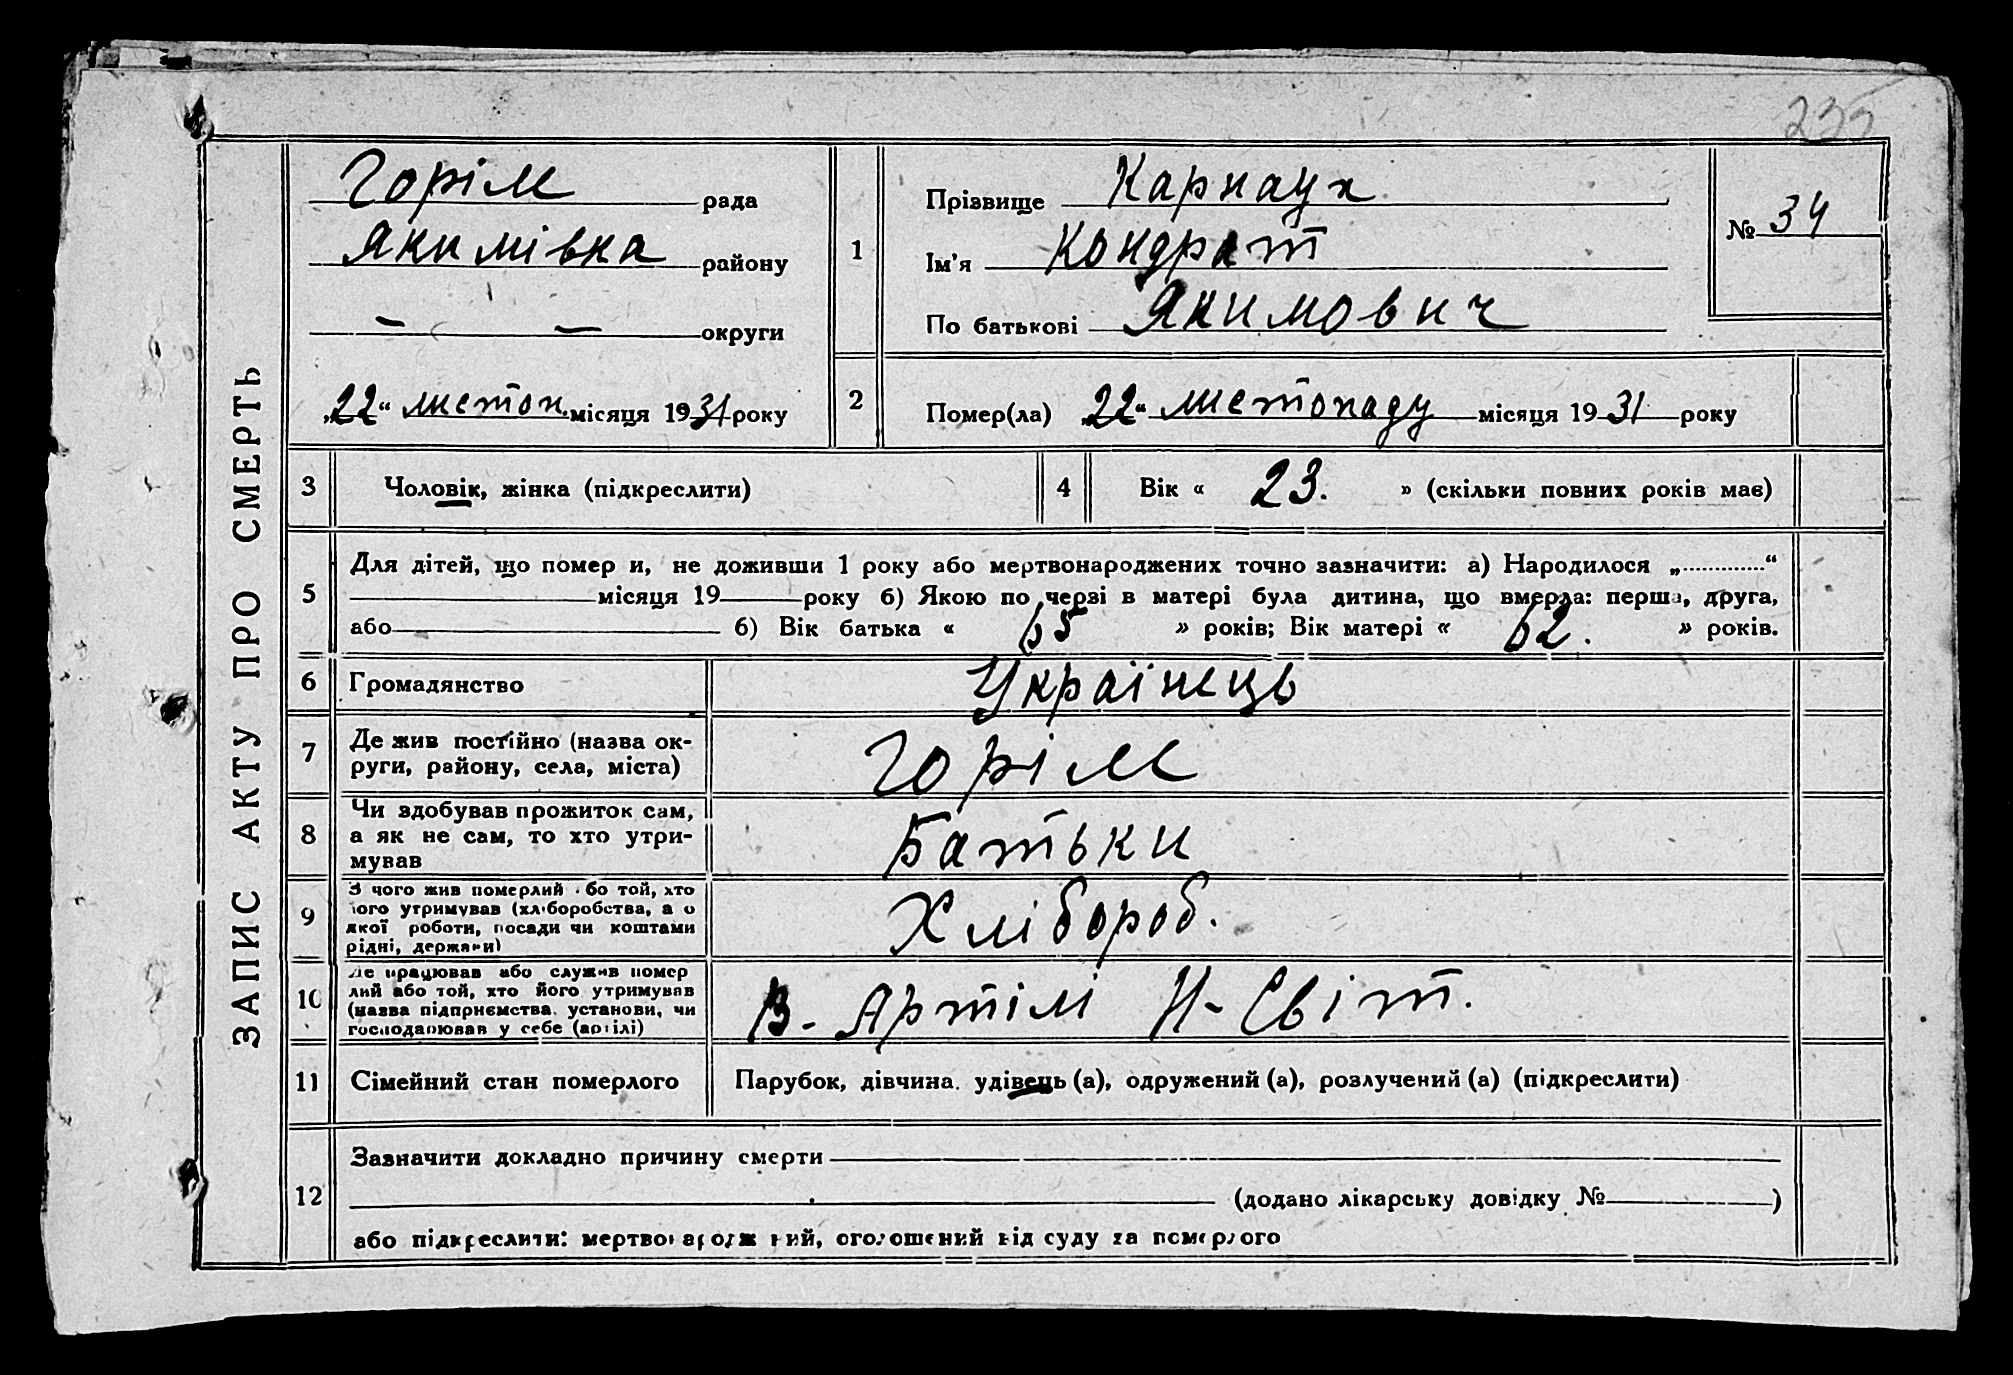 235
ЗАПИС АКТУ ПРО СМЕРТЬ
Горім рада
Якимівка району
— — округи
„22“ листоп. місяця 1931 року
1
Прізвище Карнаух
Ім'я Кондрат
По батькові Якимович
№ 34
2
Помер(ла) „22“ листопаду місяця 1931 року
3 Чоловік, жінка (підкреслити)
4 Вік « 23. » (скільки повних років має)
5 Для дітей, що помер и, не доживши 1 року або мертвонароджених точно зазначити: а) Народилося „............“
місяця 19 року б) Якою по черзі в матері була дитина, що вмерла: перша, друга,
або б) Вік батька « 65 » років; Вік матері « 62. » років.
6 Громадянство Українець
7 Де жив постійно (назва ок-
руги, району, села, міста) Горім
8 Чи здобував прожиток сам,
а як не сам, то хто утри-
мував Батьки
9 З чого жив померлий або той, хто
його утримував (хліборобства, а о
якої роботи, посади чи коштами
рідні, держави) Хлібороб.
10 Де працював або служив помер
лий або той, хто його утримував
(назва підприємства, установи, чи
господарював у себе (артілі) В- Артілі Н- Світ.
11 Сімейний стан померлого Парубок, дівчина, удівець (а), одружений (а), розлучений (а) (підкреслити)
12 Зазначити докладно причину смерти
(додано лікарську довідку № )
або підкреслити: мертвонароджений, оголошений від суду за померлого